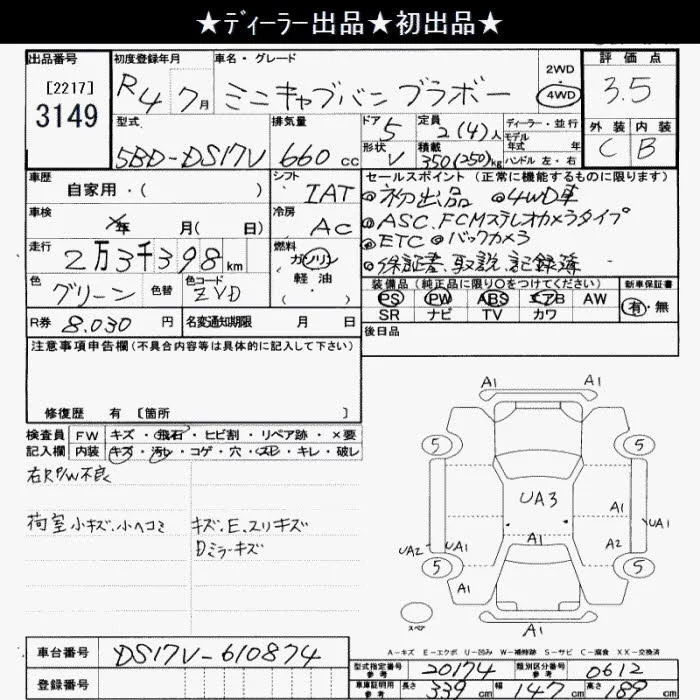 ★ﾃﾞｨｰﾗｰ出品★初出品★
出品番号
[2217]
3149
初度登録年月
R4 7月
車名・グレード
ミニキャブバン ブラボー
2WD
4WD
評価点
3.5
型式
5BD-DS17V
排気量
660 cc
ドア
5
定員
2(4)人
形状
V
積載
350(250)kg
ディーラー・並行
モデル
年式 年
ハンドル 左・右
外装 内装
C B
車歴
自家用・( )
シフト
IAT
車検
年 月( 日)
冷房
AC
走行
2万3千398km
燃料
ガソリン
軽油
色
グリーン
色替
色コード
ZVD
R券 8.030 円
名変通知期限 月 日
セールスポイント(正常に機能するものに限ります)
◎初出品 ◎4WD車
◎ASC.FCMステレオカメラタイプ
◎ETC ◎バックカメラ
◎保証書.取説.記録簿
装備品(純正品に限り○をつけてください)
PS PW ABS エアB AW
SR ナビ TV カワ
新車保証書
有・無
後日品
注意事項申告欄(不具合内容等は具体的に記入して下さい)
修復歴 有 [箇所 ]
検査員 FW キズ・飛石・ヒビ割・リペア跡・×要
記入欄 内装 キズ・汚レ・コゲ・穴・スレ・キレ・破レ
右R P/W不良
荷室 小キズ.小ヘコミ
キズ.E.スリキズ
Dミラーキズ
A1 A1
5 5
UA3
A1
UA1
A1
UA2 UA1
A2
5 5
A1
スペア
A1
A-キズ E-エクボ U-凹み W-補修跡 S-サビ C-腐食 XX-交換済
車台番号 DS17V-610874
登録番号
型式指定番号
参考
20174
類別区分番号
参考
0612
車庫証明用
参考
長さ 339 cm 幅 147 cm 高さ 189 cm